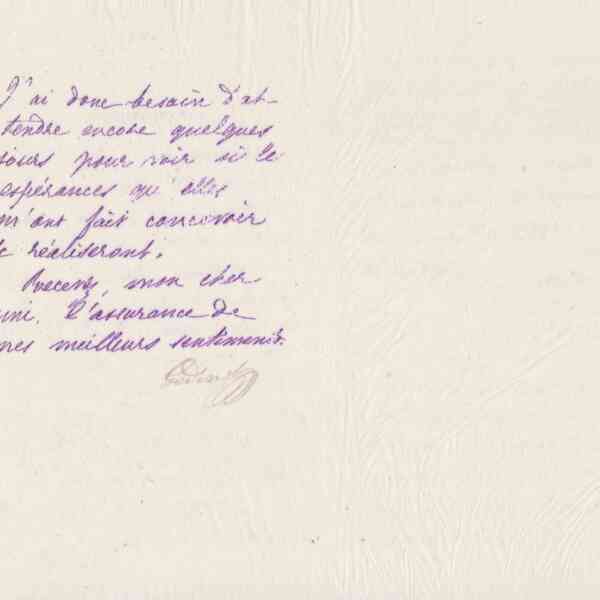 J'ai donc besoin d'at-
tendre encore quelques
jours pour voir si le
espérances qu'elles
m'ont fait concevoir
se réaliseront.
Recevez, mon cher
ami, l'assurance de
mes meilleurs sentiments.